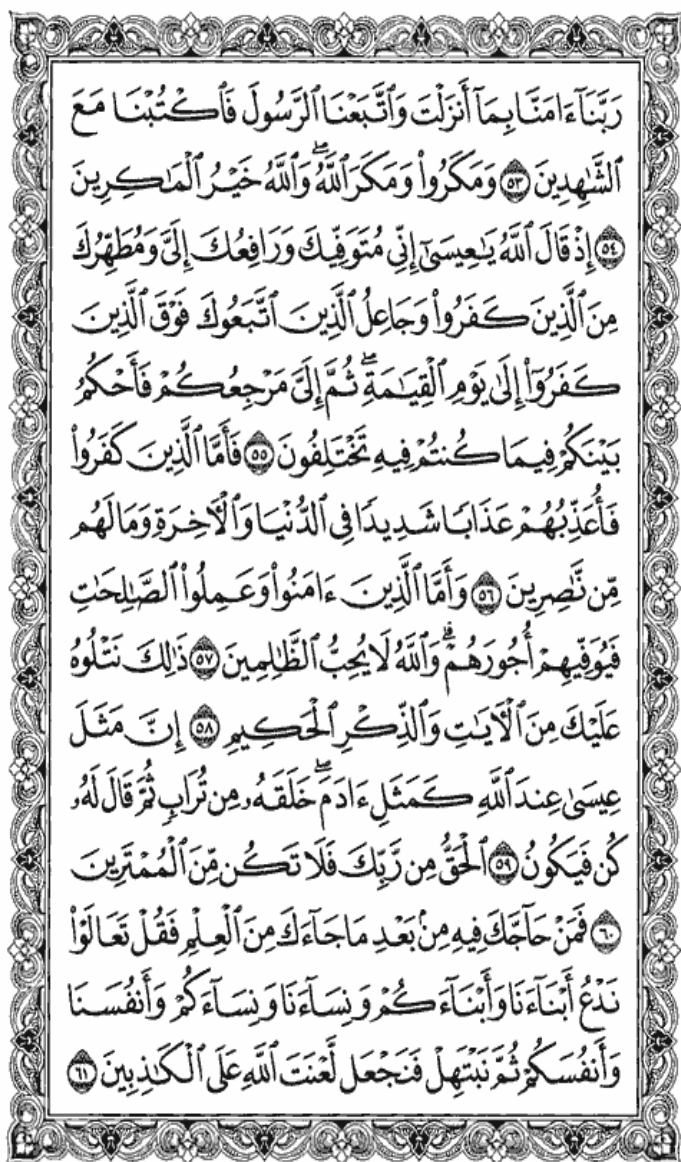 رَبَّنَآ ءَامَنَّا بِمَآ أَنزَلْتَ وَٱتَّبَعْنَا ٱلرَّسُولَ فَٱكْتُبْنَا مَعَ
ٱلشَّٰهِدِينَ ٥٣ وَمَكَرُوا۟ وَمَكَرَ ٱللَّهُ ۖ وَٱللَّهُ خَيْرُ ٱلْمَٰكِرِينَ
٥٤ إِذْ قَالَ ٱللَّهُ يَٰعِيسَىٰٓ إِنِّى مُتَوَفِّيكَ وَرَافِعُكَ إِلَىَّ وَمُطَهِّرُكَ
مِنَ ٱلَّذِينَ كَفَرُوا۟ وَجَاعِلُ ٱلَّذِينَ ٱتَّبَعُوكَ فَوْقَ ٱلَّذِينَ
كَفَرُوٓا۟ إِلَىٰ يَوْمِ ٱلْقِيَٰمَةِ ۖ ثُمَّ إِلَىَّ مَرْجِعُكُمْ فَأَحْكُمُ
بَيْنَكُمْ فِيمَا كُنتُمْ فِيهِ تَخْتَلِفُونَ ٥٥ فَأَمَّا ٱلَّذِينَ كَفَرُوا۟
فَأُعَذِّبُهُمْ عَذَابًا شَدِيدًا فِى ٱلدُّنْيَا وَٱلْءَاخِرَةِ وَمَا لَهُم
مِّن نَّٰصِرِينَ ٥٦ وَأَمَّا ٱلَّذِينَ ءَامَنُوا۟ وَعَمِلُوا۟ ٱلصَّٰلِحَٰتِ
فَيُوَفِّيهِمْ أُجُورَهُمْ ۗ وَٱللَّهُ لَا يُحِبُّ ٱلظَّٰلِمِينَ ٥٧ ذَٰلِكَ نَتْلُوهُ
عَلَيْكَ مِنَ ٱلْءَايَٰتِ وَٱلذِّكْرِ ٱلْحَكِيمِ ٥٨ إِنَّ مَثَلَ
عِيسَىٰ عِندَ ٱللَّهِ كَمَثَلِ ءَادَمَ ۖ خَلَقَهُۥ مِن تُرَابٍ ثُمَّ قَالَ لَهُۥ
كُن فَيَكُونُ ٥٩ ٱلْحَقُّ مِن رَّبِّكَ فَلَا تَكُن مِّنَ ٱلْمُمْتَرِينَ
٦٠ فَمَنْ حَآجَّكَ فِيهِ مِنۢ بَعْدِ مَا جَآءَكَ مِنَ ٱلْعِلْمِ فَقُلْ تَعَالَوْا۟
نَدْعُ أَبْنَآءَنَا وَأَبْنَآءَكُمْ وَنِسَآءَنَا وَنِسَآءَكُمْ وَأَنفُسَنَا
وَأَنفُسَكُمْ ثُمَّ نَبْتَهِلْ فَنَجْعَل لَّعْنَتَ ٱللَّهِ عَلَى ٱلْكَٰذِبِينَ ٦١